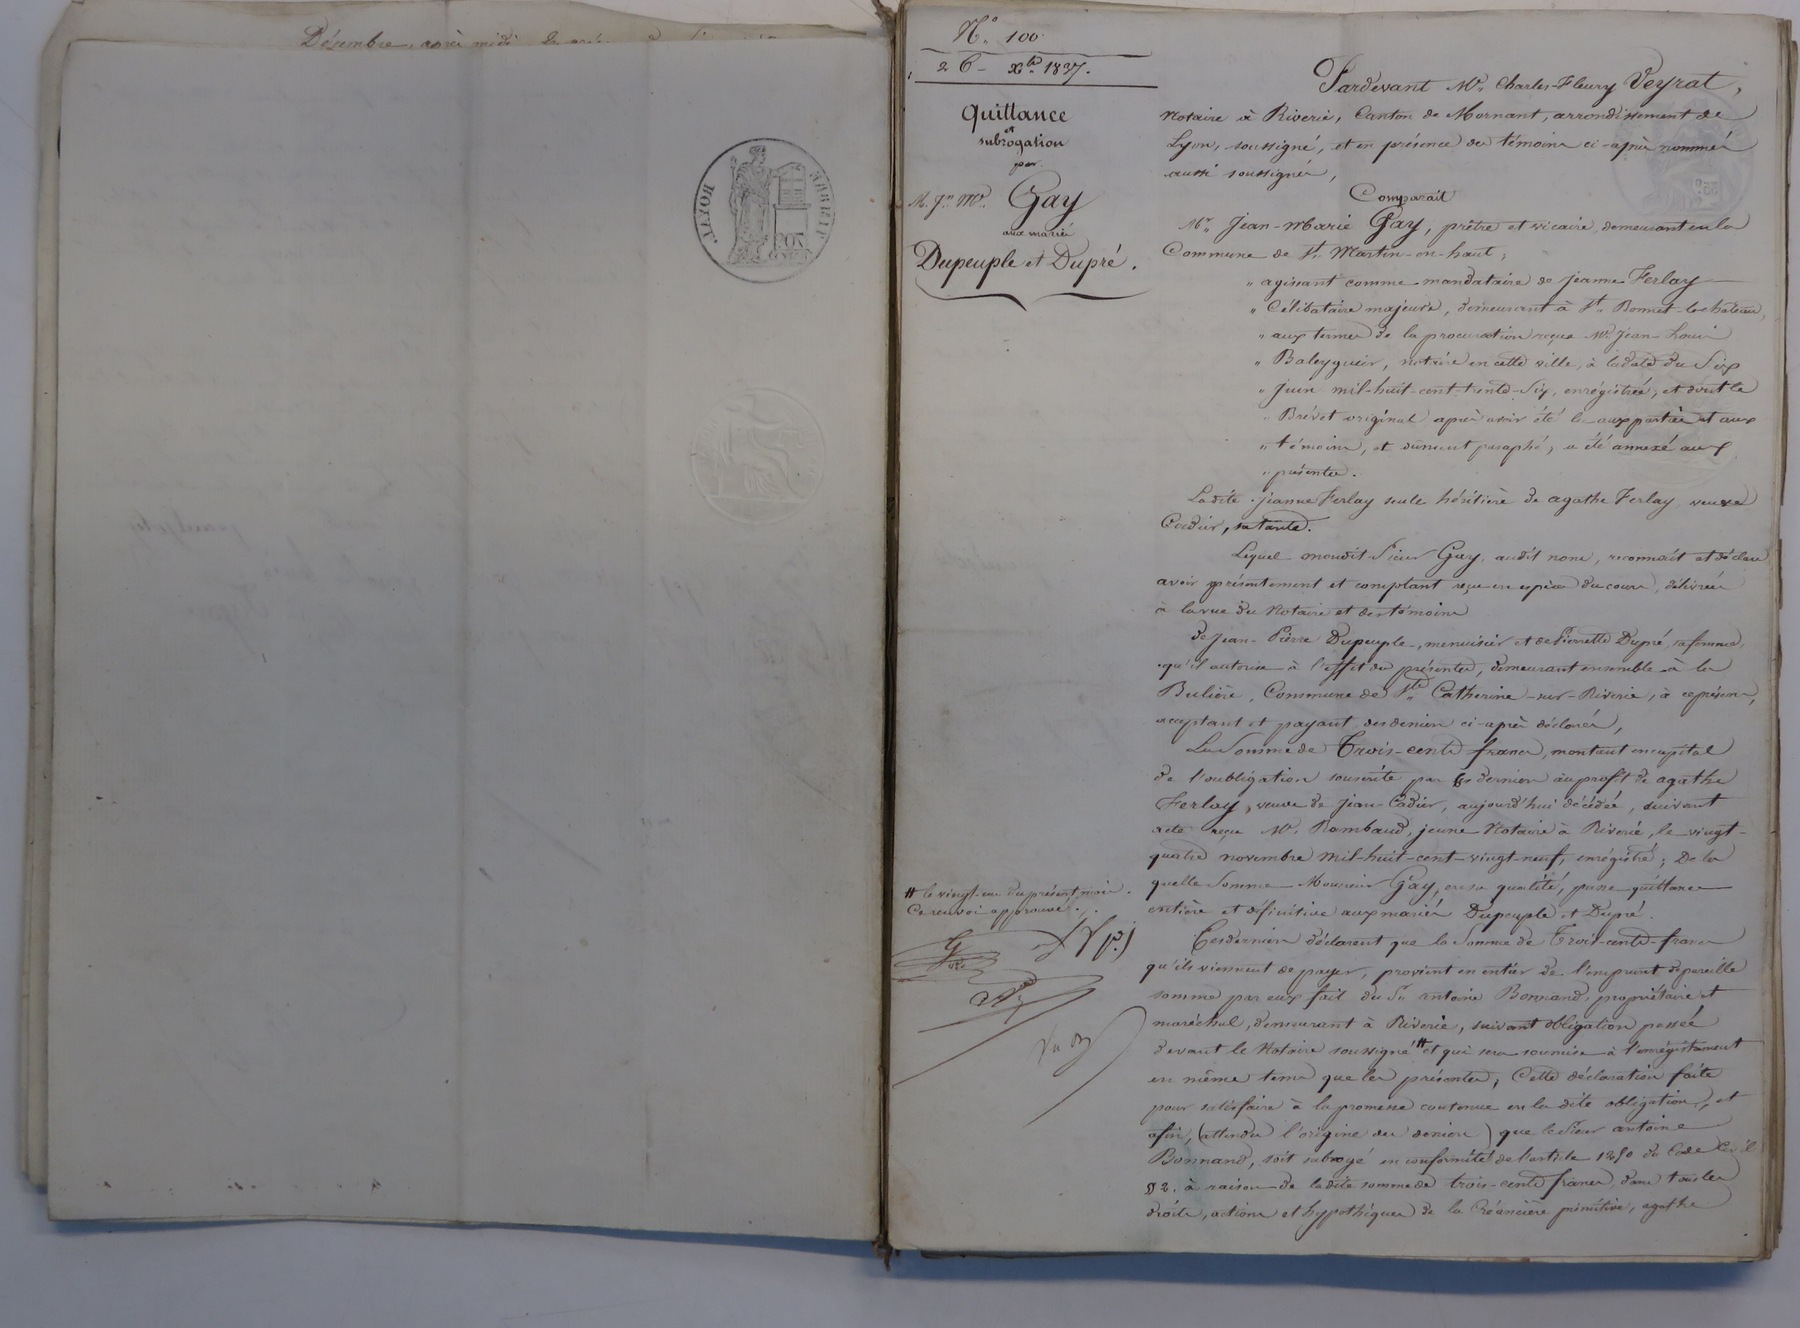 Décembre, après midi
N.° 100.
26 - Xbre 1837.
Quittance
et
subrogation
par
M. Jn. Mie. Gay
aux mariés
Dupeuple et Dupré.
# le vingt-un du présent mois.
Ce renvoi approuvé.
Pardevant Me. Charles-Fleury Veyrat,
Notaire à Riverie, Canton de Mornant, arrondissement de
Lyon, soussigné, et en présence des témoins ci-après nommés
aussi soussignés,
Comparait
Mr. Jean-Marie Gay, prêtre et vicaire, demeurant en la
Commune de St. Martin-en-haut;
" agissant comme mandataire de jeanne Ferlay
" Célibataire majeure, demeurant à St. Bonnet-le-château,
" aux termes de la procuration reçue Me. Jean-Louis
" Baleyguier, notaire en cette ville, à la date du Six
" juin mil-huit-cent-trente-Six, enrégistrée, et dont le
" Brévet original après avoir été lu aux parties et aux
" témoins, et dûment paraphé, a été annexé aux
" présentes.
La dite jeanne Ferlay seule héritière de agathe Ferlay veuve
Cadier, sa tante.
Lequel moudit-Sieur Gay, audit nom, reconnait et déclare
avoir présentement et comptant reçu en espèces du cours, délivrées
à la vue du Notaire et des témoins
de Jean-Pierre Dupeuple, menuisier et de Pierrette Dupré, sa femme,
qu'il autorise à l'effet des présentes, demeurant ensemble à la
Bulière, Commune de Ste. Catherine-sur-Riverie, à ce présens,
acceptant et payant des deniers ci-après déclarés,
La Somme de Trois-cents francs, montant en capital
de l'oubligation souscrite par ces derniers au profit de agathe
Ferlay, veuve de Jean Cadier, aujourd'hui décédée, suivant
acte reçu Me. Rambaud, jeune Notaire à Riverie, le vingt-
quatre novembre mil-huit-cent-vingt-neuf, enrégistré; De la
quelle Somme Monsieur Gay, en sa qualité, passe quittance
entière et définitive aux mariés Dupeuple et Dupré.
Ces derniers déclarent que la Somme de Trois-cents-francs
qu'ils viennent de payer, provient en entier de l'emprunt de pareille
somme par eux fait du Sr. antoine Bonnand, propriétaire et
maréchal, demeurant à Riverie, suivant obligation passée
devant le Notaire soussigné # et qui sera soumise à l'enrégistrement
en même tems que les présentes; Cette déclaration faite
pour satisfaire à la promesse contenue en la dite obligation, et
afin, (attendu l'origine des deniers) que le Sieur antoine
Bonnand, soit subrogé en conformité de l'article 1250 du Code Civil
§ 2. à raison de la dite somme de trois-cents francs, dans tous les
droits, actions et hypothéques de la Créancière primitive, agathe